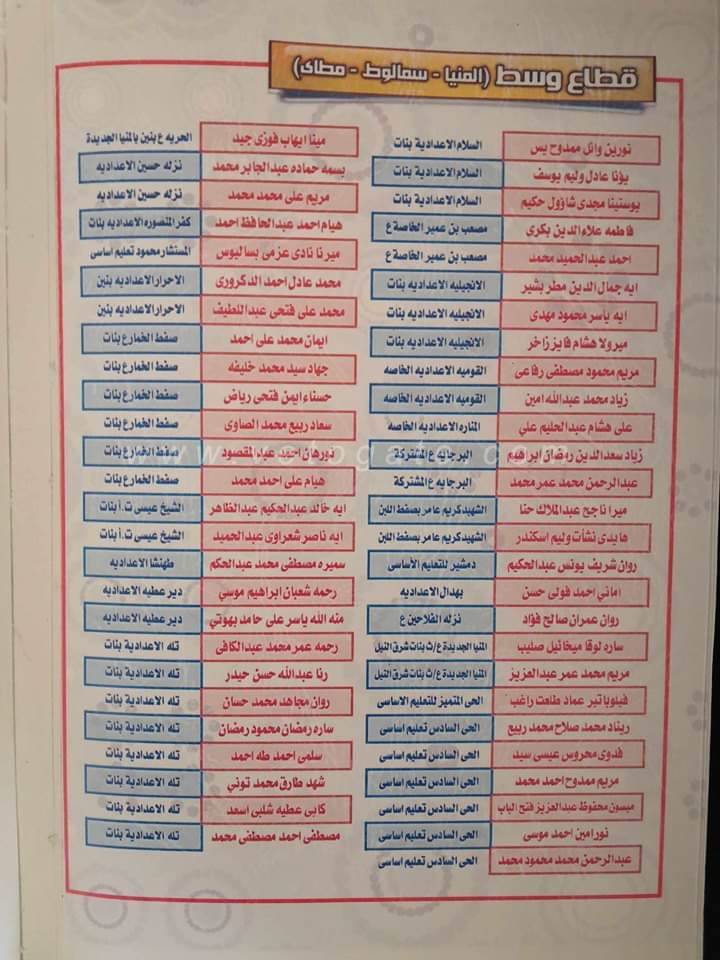 قطاع وسط (المنيا - سمالوط - مطاى)
نورين وائل ممدوح يس السلام الاعدادية بنات
يؤنا عادل وليم يوسف السلام الاعدادية بنات
يوستينا مجدى شاؤول حكيم السلام الاعدادية بنات
فاطمه علاء الدين بكرى مصعب بن عمير الخاصة ع
احمد عبدالحميد محمد مصعب بن عمير الخاصة ع
ايه جمال الدين مطر بشير الانجيليه الاعدادية بنات
ايه ياسر محمود مهدى الانجيليه الاعدادية بنات
ميرولا هشام فايز زاخر الانجيليه الاعدادية بنات
مريم محمود مصطفى رفاعى القوميه الاعداديه الخاصه
زياد محمد عبدالله امين القوميه الاعداديه الخاصه
على هشام عبدالحليم علي المناره الاعداديه الخاصه
زياد سعدالدين رمضان ابراهيم البرجايه ع المشتركة
عبدالرحمن محمد عمر محمد البرجايه ع المشتركة
ميرا ناجح عبدالملاك حنا الشهيد كريم عامر بصفط اللبن
هايدى نشأت وليم اسكندر الشهيد كريم عامر بصفط اللبن
روان شريف يونس عبدالحكيم دمشير للتعليم الأساسى
امانى احمد فولى حسن بهدال الاعداديه
روان عمران صالح فؤاد نزله الفلاحين ع
ساره لوقا ميخائيل صليب المنيا الجديدة ع/ث بنات شرق النيل
مريم محمد عمر عبدالعزيز المنيا الجديدة ع/ث بنات شرق النيل
فيلوباتير عماد طلعت راغب الحى المتميز للتعليم الاساسى
ريناد محمد صلاح محمد ربيع الحى السادس تعليم اساسى
فدوى محروس عيسى سيد الحى السادس تعليم اساسى
مريم ممدوح احمد محمد الحى السادس تعليم اساسى
ميسون محفوظ عبدالعزيز فتح الباب الحى السادس تعليم اساسى
نورامين احمد موسى الحى السادس تعليم اساسى
عبدالرحمن محمد محمود محمد الحى السادس تعليم اساسى
مينا ايهاب فوزى جيد الحريه ع بنين بالمنيا الجديدة
بسمه حماده عبدالجابر محمد نزله حسين الاعداديه
مريم على محمد محمد نزله حسين الاعداديه
هيام احمد عبدالحافظ احمد كفر المنصوره الاعداديه بنات
ميرنا نادى عزمى بساليوس المستشار محمود تعليم اساسى
محمد عادل احمد الدكرورى الاحرار الاعداديه بنين
محمد على فتحى عبداللطيف الاحرار الاعداديه بنين
ايمان محمد على احمد صفط الخمار ع بنات
جهاد سيد محمد خليفه صفط الخمار ع بنات
حسناء ايمن فتحى رياض صفط الخمار ع بنات
سعاد ربيع محمد الصاوى صفط الخمار ع بنات
نورهان احمد عبدالمقصود صفط الخمار ع بنات
هيام على احمد محمد صفط الخمار ع بنات
ايه خالد عبدالحكيم عبدالظاهر الشيخ عيسى ت.أ بنات
ايه ناصر شعراوى عبدالحميد الشيخ عيسى ت.أ بنات
سميره مصطفى محمد عبدالحكم طهنشا الاعداديه
رحمه شعبان ابراهيم موسي دير عطيه الاعداديه
منه الله ياسر على حامد بهوتي دير عطيه الاعداديه
رحمه عمر محمد عبدالكافى تله الاعدادية بنات
رنا عبدالله حسن حيدر تله الاعدادية بنات
روان مجاهد محمد حسان تله الاعدادية بنات
ساره رمضان محمود رمضان تله الاعدادية بنات
سلمى احمد طه احمد تله الاعدادية بنات
شهد طارق محمد توني تله الاعدادية بنات
كابى عطيه شلبى اسعد تله الاعدادية بنات
مصطفى احمد مصطفى محمد تله الاعدادية بنات